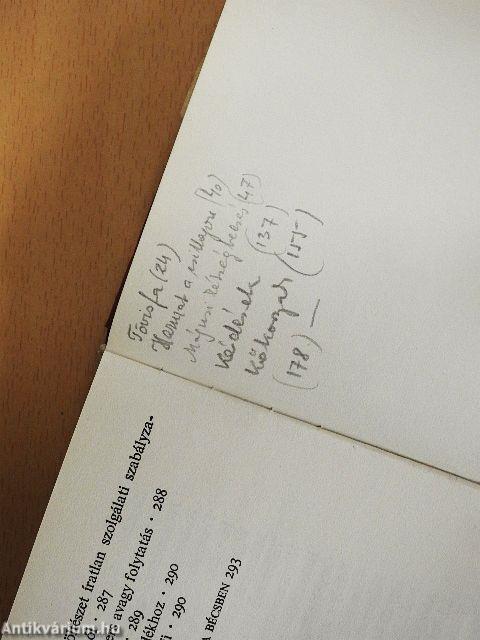 Tövisfa (24)
Hanyat a csillagok (40)
Májusi kétségbeesés (47)
Kérdések (137)
Kökorzat (155-)
(178) —
észet íratlan szolgálati szabályza-
287
avagy folytatás · 288
289
ékhoz · 290
i · 290
A BÉCSBEN 293
Antikvárium.hu